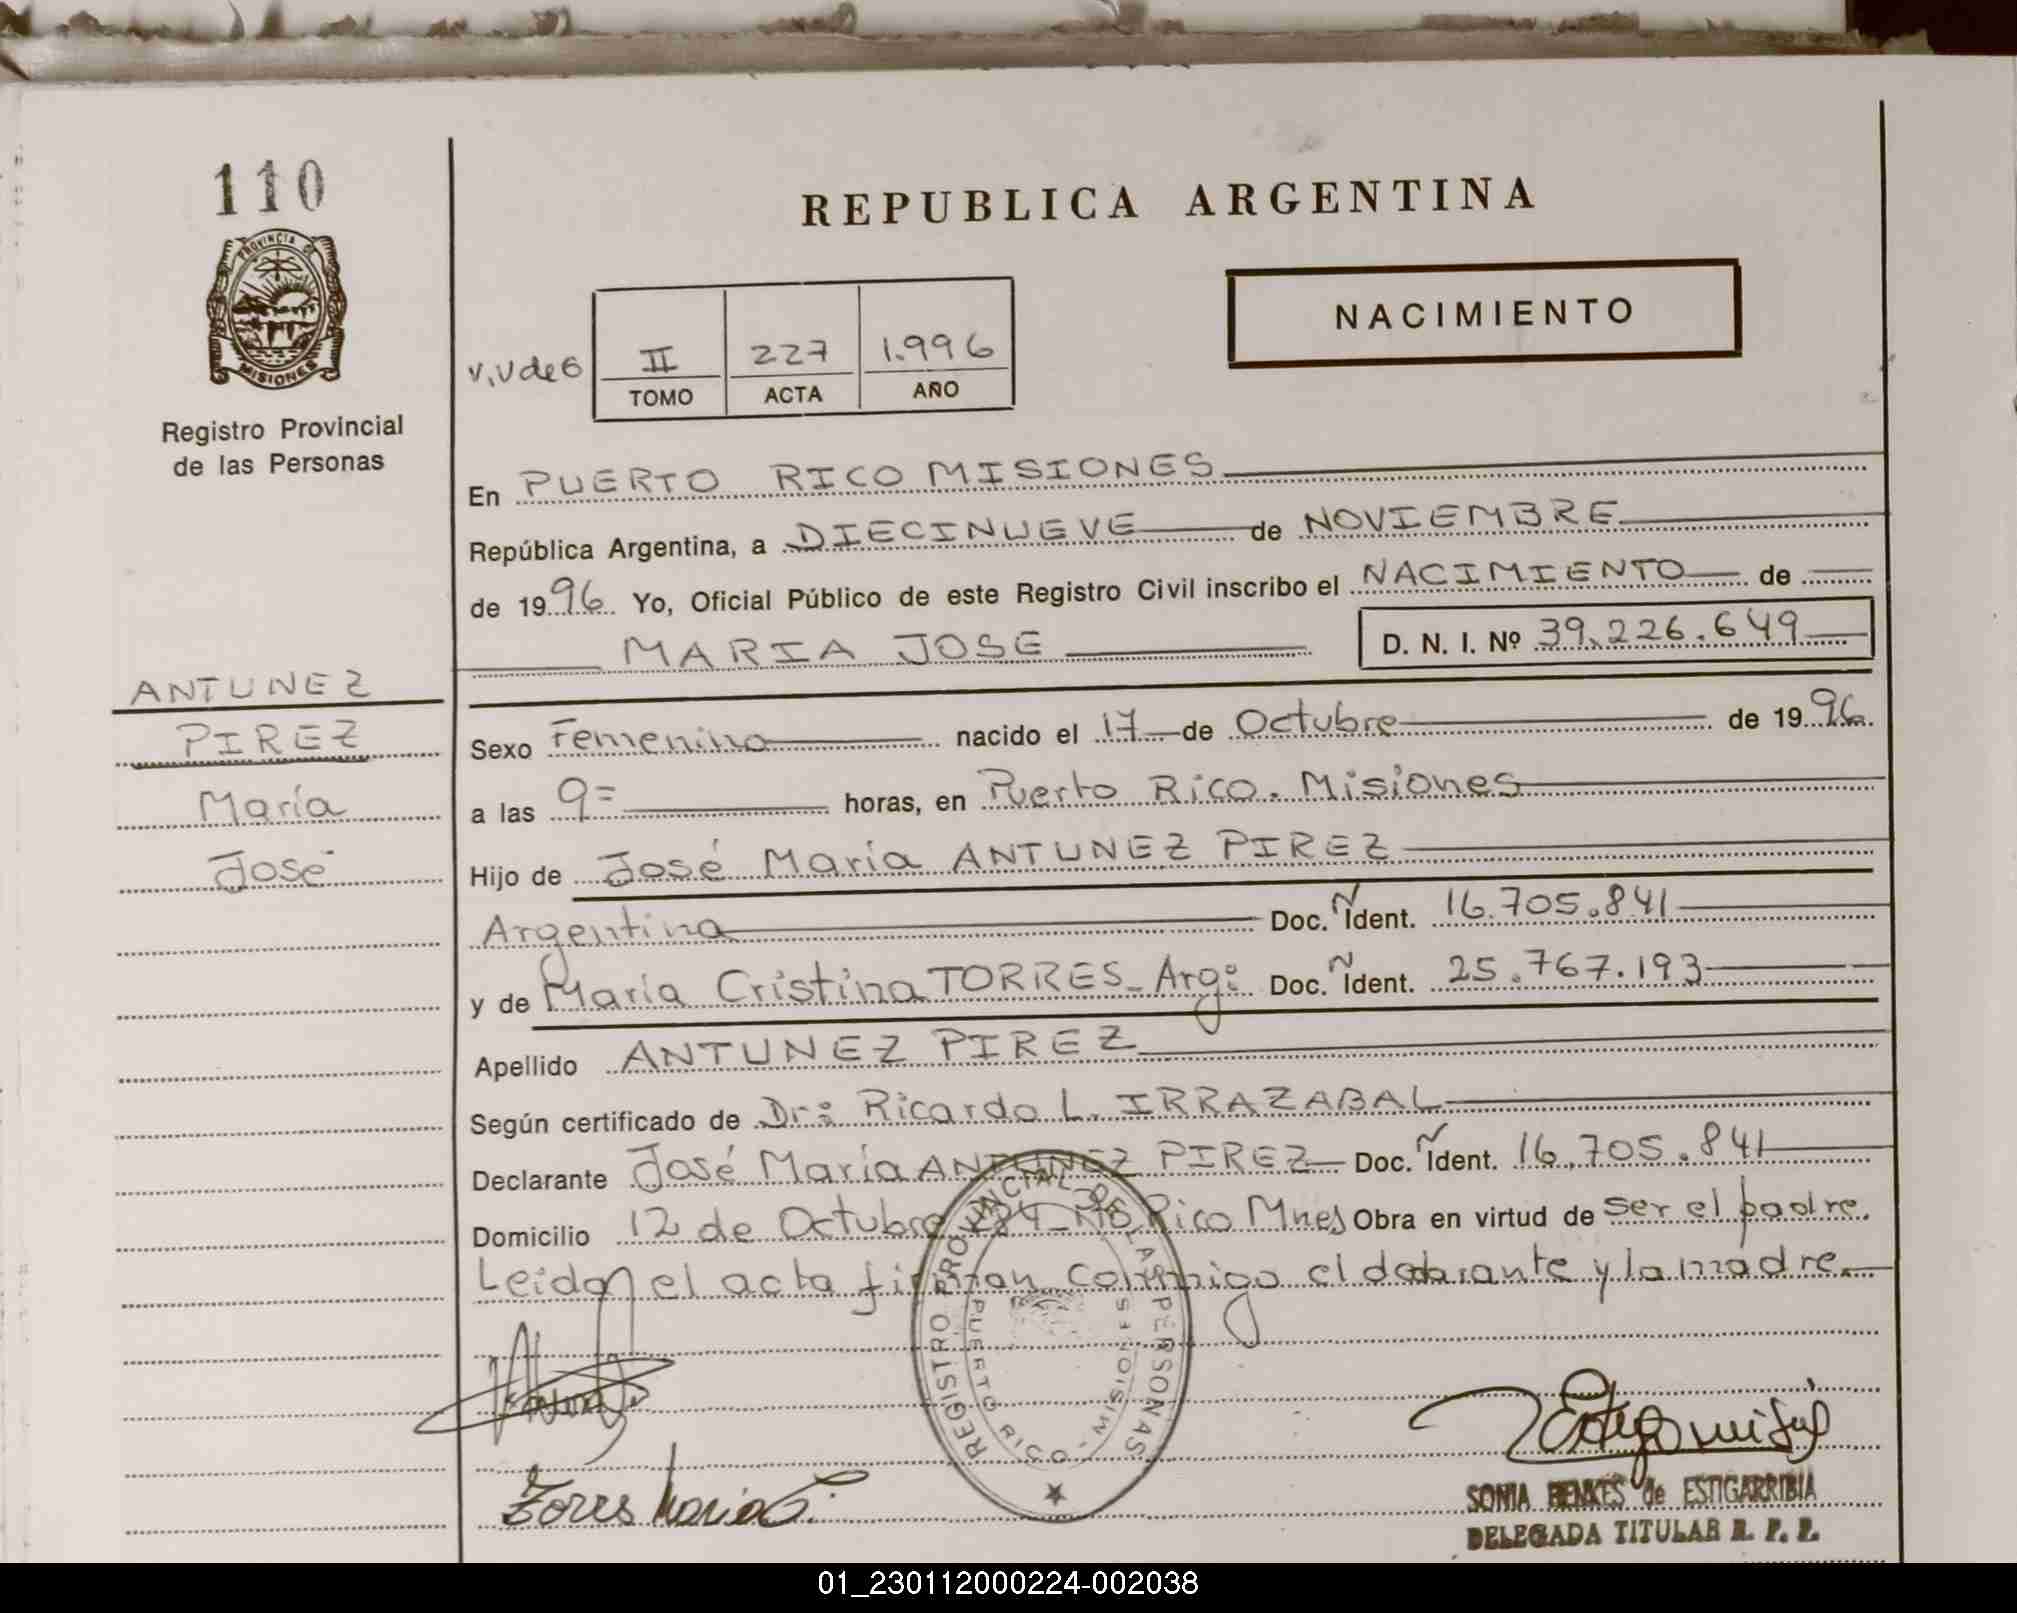 110
PROVINCIA DE
MISIONES
Registro Provincial
de las Personas
ANTUNEZ
PIREZ
María
José
REPUBLICA ARGENTINA
NACIMIENTO
II 227 1.996
TOMO ACTA AÑO
En PUERTO RICO MISIONES
República Argentina, a DIECINUEVE de NOVIEMBRE
de 1996 Yo, Oficial Público de este Registro Civil inscribo el NACIMIENTO de
MARIA JOSE D. N. I. Nº 39.226.649
Sexo Femenino nacido el 17 de Octubre de 1996.
a las 9= horas, en Puerto Rico. Misiones
Hijo de José María ANTUNEZ PIREZ
Argentina Doc. Ñ Ident. 16.705.841
y de María Cristina TORRES_ Arg: Doc. Ñ Ident. 25.767.193
Apellido ANTUNEZ PIREZ
Según certificado de Dr: Ricardo L. IRRAZABAL
Declarante José María ANTUNEZ PIREZ Doc. Ñ Ident. 16.705.841
Domicilio 12 de Octubre 284_ Rico Mnes Obra en virtud de ser el padre.
Leida el acta firman conmigo el declarante y la madre.
REGISTRO PROVINCIAL DE LAS PERSONAS
PUERTO RICO - MISIONES
Torres Maria C.
SONIA BENKES de ESTIGARRIBIA
DELEGADA TITULAR R. P. P.
01_230112000224-002038